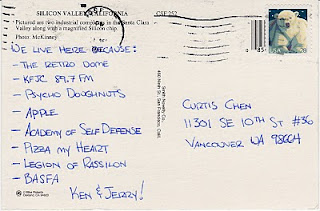 SILICON VALLEY, CALIFORNIA
Pictured are two industrial complexes in the Santa Clara
Valley along with a magnified Silicon chip.
Photo: McKinney
CSF 252
WE LIVE HERE BECAUSE:
- THE RETRO DOME
- KFJC 89.7 FM
- PSYCHO DOUGHNUTS
- APPLE
- ACADEMY OF SELF DEFENSE
- PIZZA MY HEART
- LEGION OF RASSILON
- BASFA
KEN & JERRY!
Smith Novelty Co.
460 Ninth St., San Francisco, Calif.
USA 28
CURTIS CHEN
11301 SE 10TH ST #36
VANCOUVER WA 98664